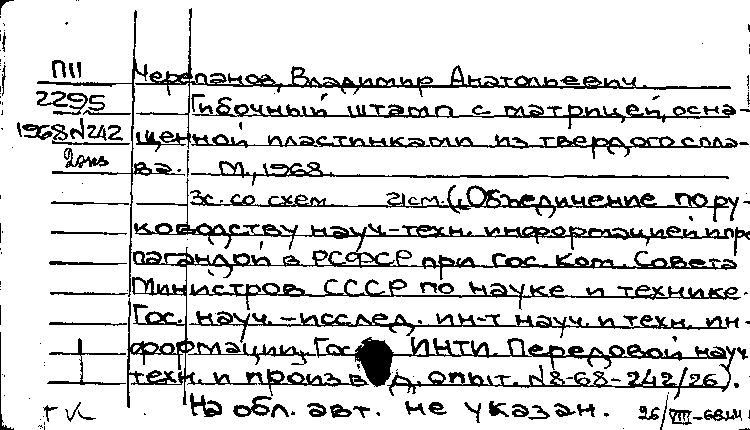 ПII Черепанов, Владимир Анатольевич.
2295 Гибочный штамп с матрицей, осна-
1968 №242 щенной пластинками из твердого спла-
2 экз ва. М., 1968.
3с. со схем. 21см. („Объединение по ру-
ководству науч-техн. информацией и про
пагандой в РСФСР при Гос. Ком. Совета
Министров СССР по науке и технике.
Гос. науч.-исслед. ин-т науч. и техн. ин-
формации. Гос ИНТИ. Передовой науч
техн. и произв д. опыт. №8-68-242/26).
На обл. авт. не указан. 26/VIII-68